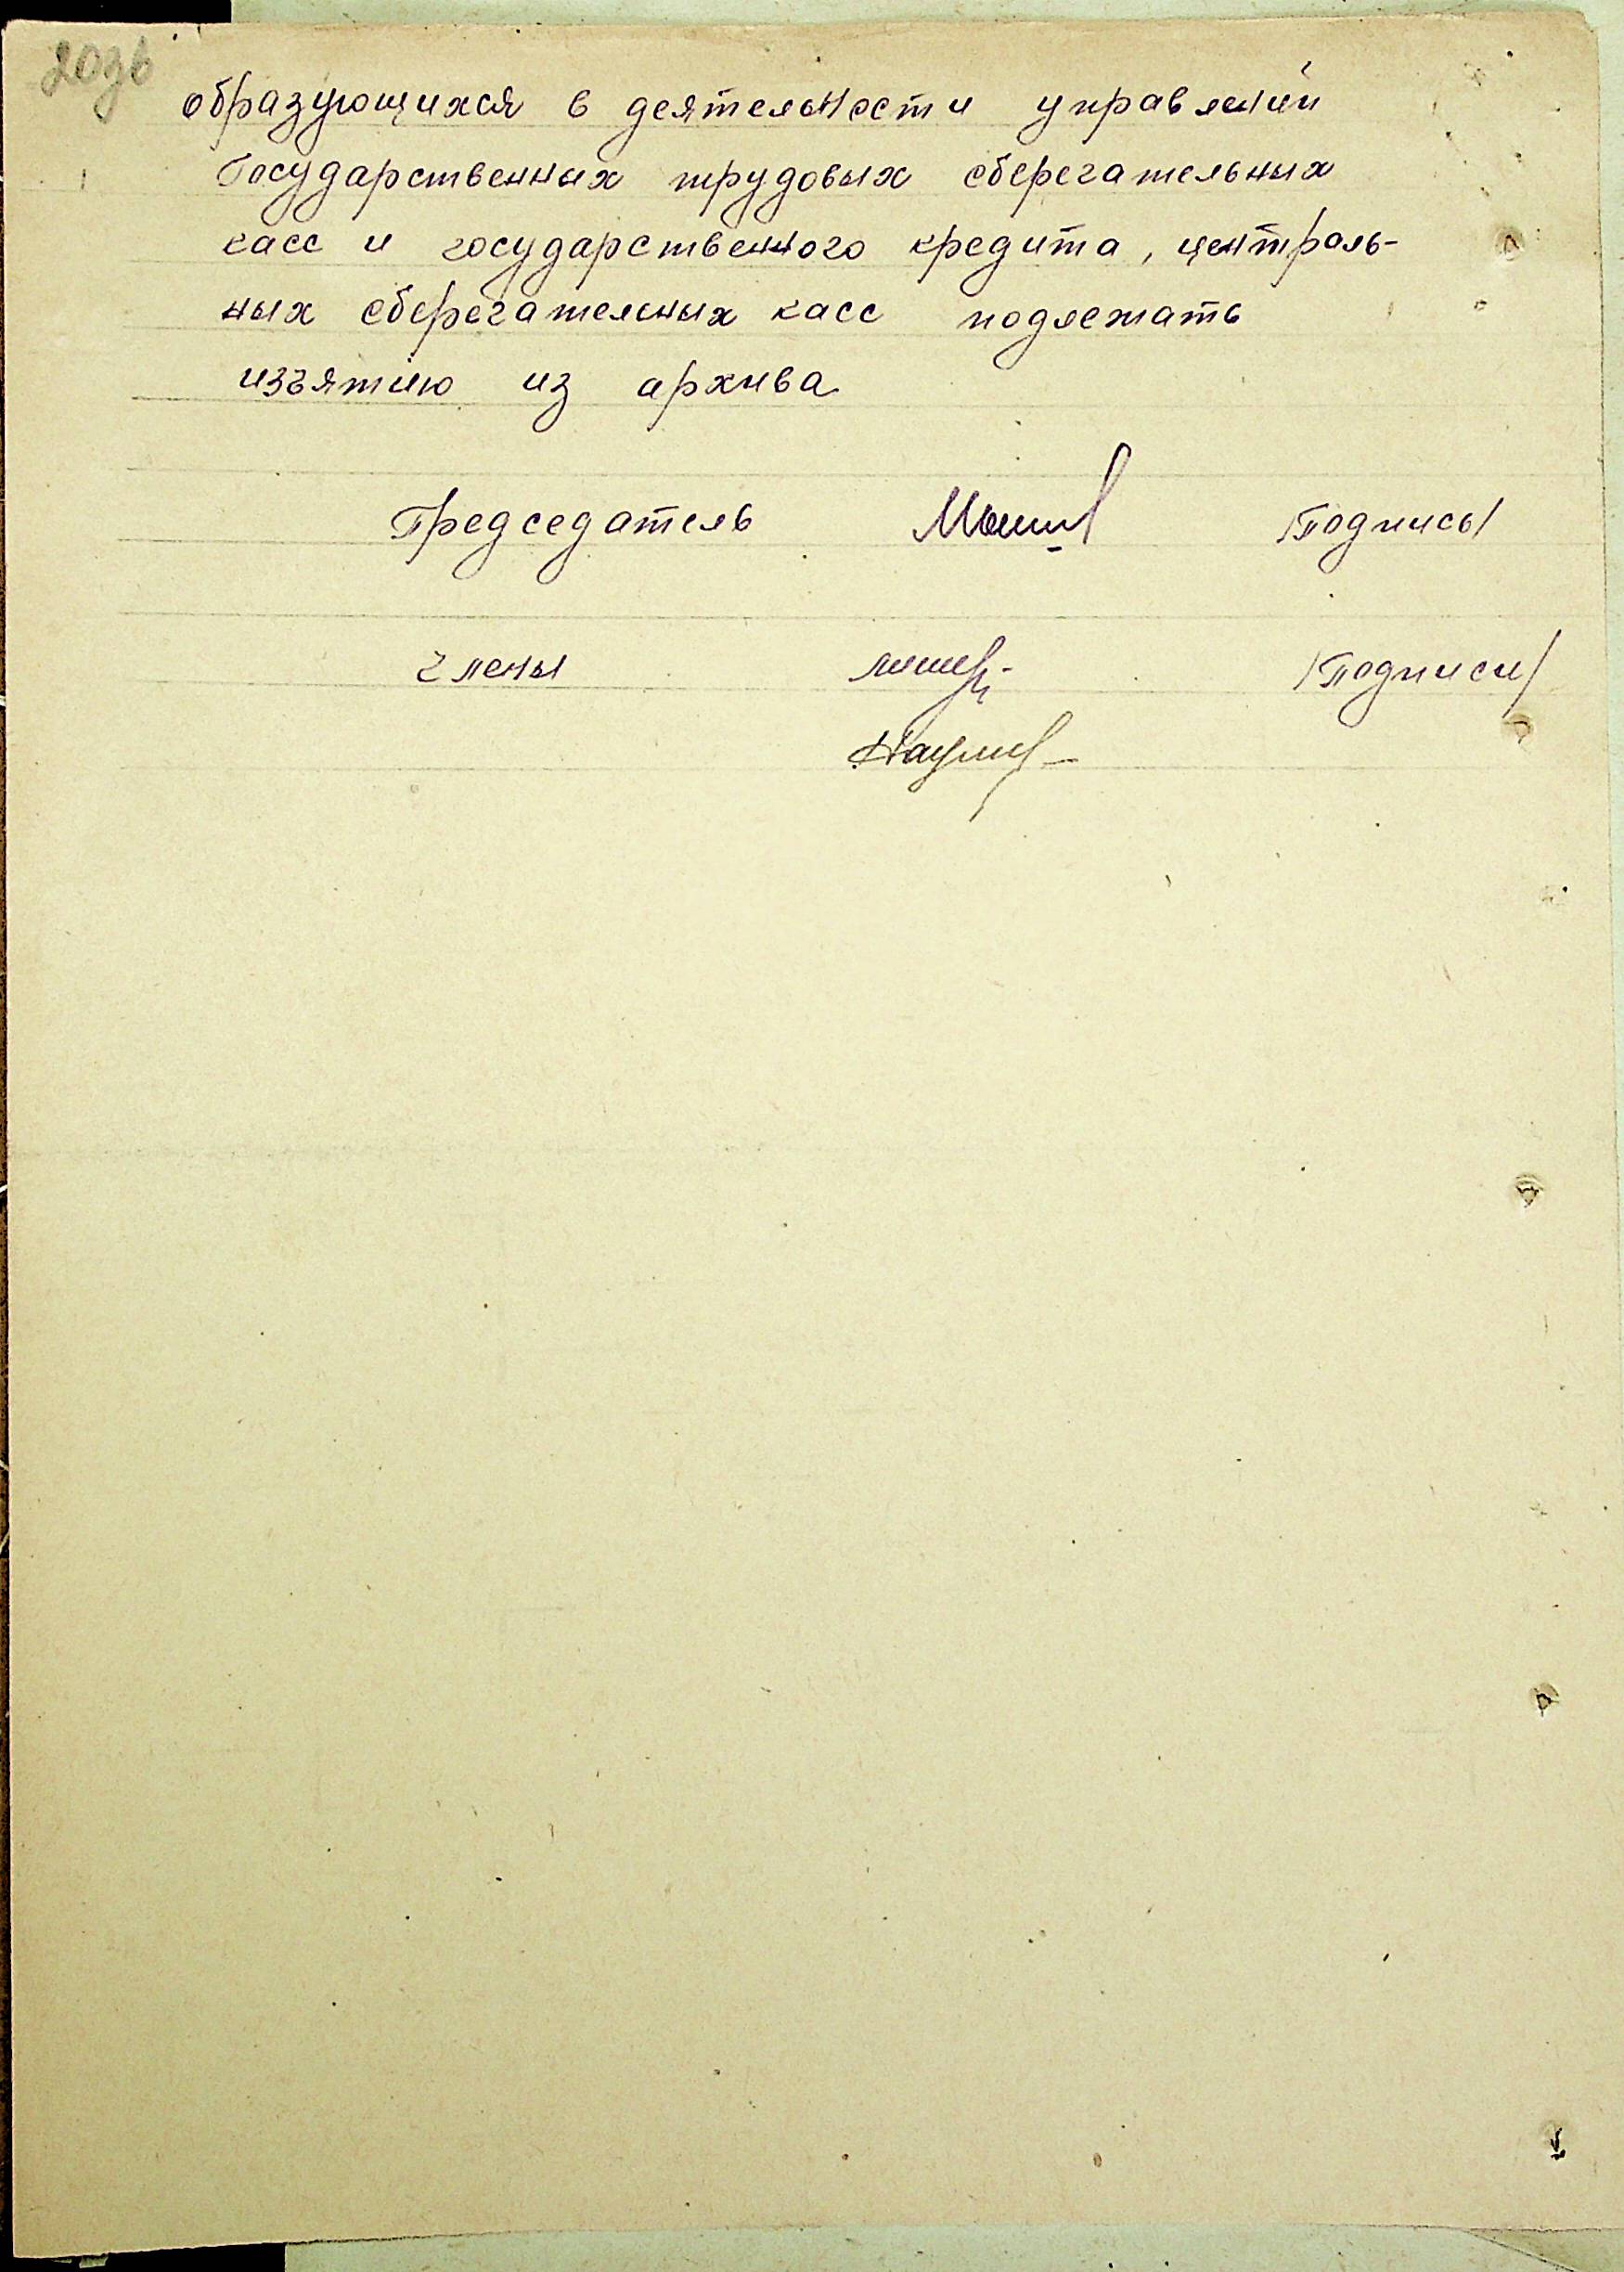 образующихся в деятельности управлений
Государственных трудовых сберегательных
касс и государственного кредита, централь-
ных сберегательных касс подлежать
изъятию из архива
Председатель /Подпись/
Члены /Подписи/